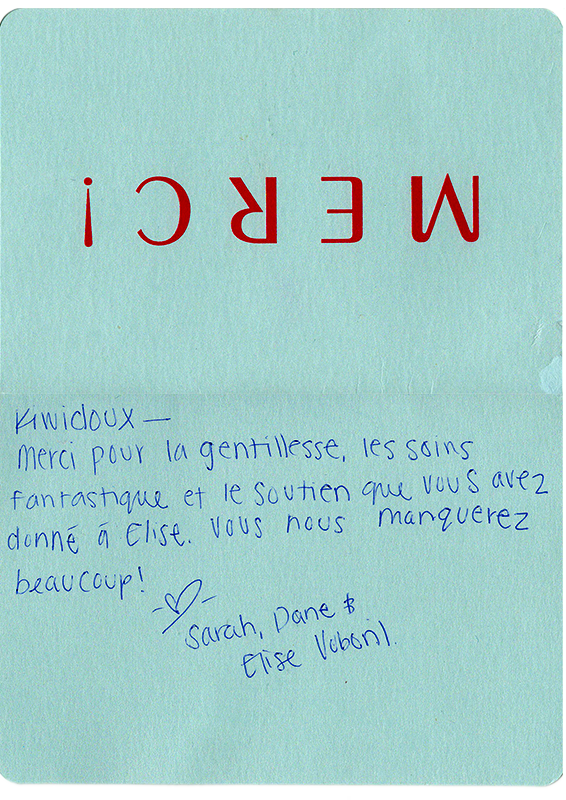 MERC!
Kiwidoux —
Merci pour la gentillesse, les soins
fantastique et le soutien que vous avez
donné à Elise. Vous nous manquerez
beaucoup!
Sarah, Dane &
Elise Voboril.